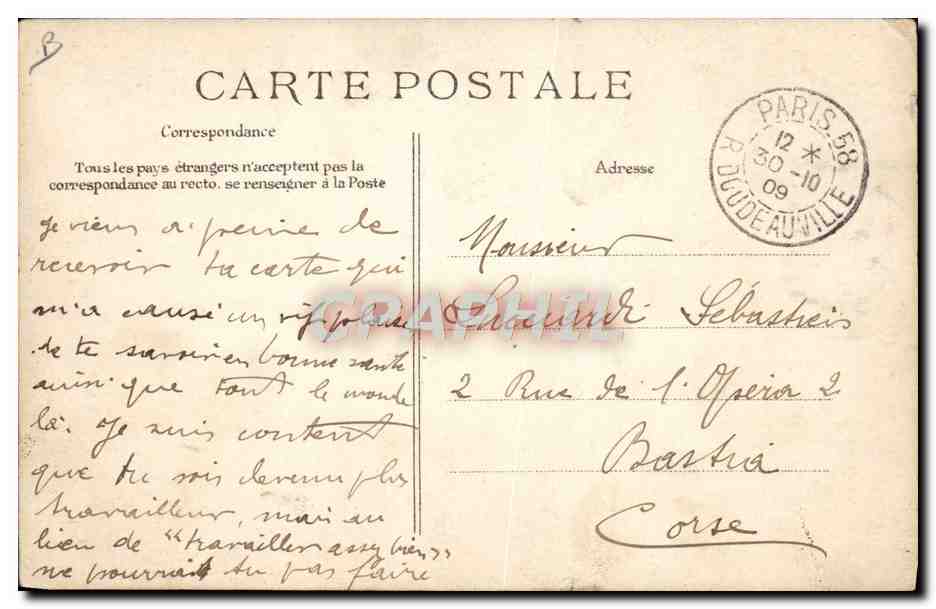 B
CARTE POSTALE
Correspondance
Tous les pays étrangers n'acceptent pas la
correspondance au recto. se renseigner à la Poste
Adresse
PARIS 58
12 *
30 -10
09
R DOUDEAUVILLE
Je viens à peine de
recevoir ta carte qui
m'a causé un vif plaisir
de te savoir en bonne santé
ainsi que tout le monde
là. Je suis content
que tu sois devenu plus
travailleur, mais au
lieu de "travailler assez bien"
ne pourrait tu pas faire
Monsieur
Sébastien
2 Rue de l'Opéra 2
Bastia
Corse
CPAPHIL